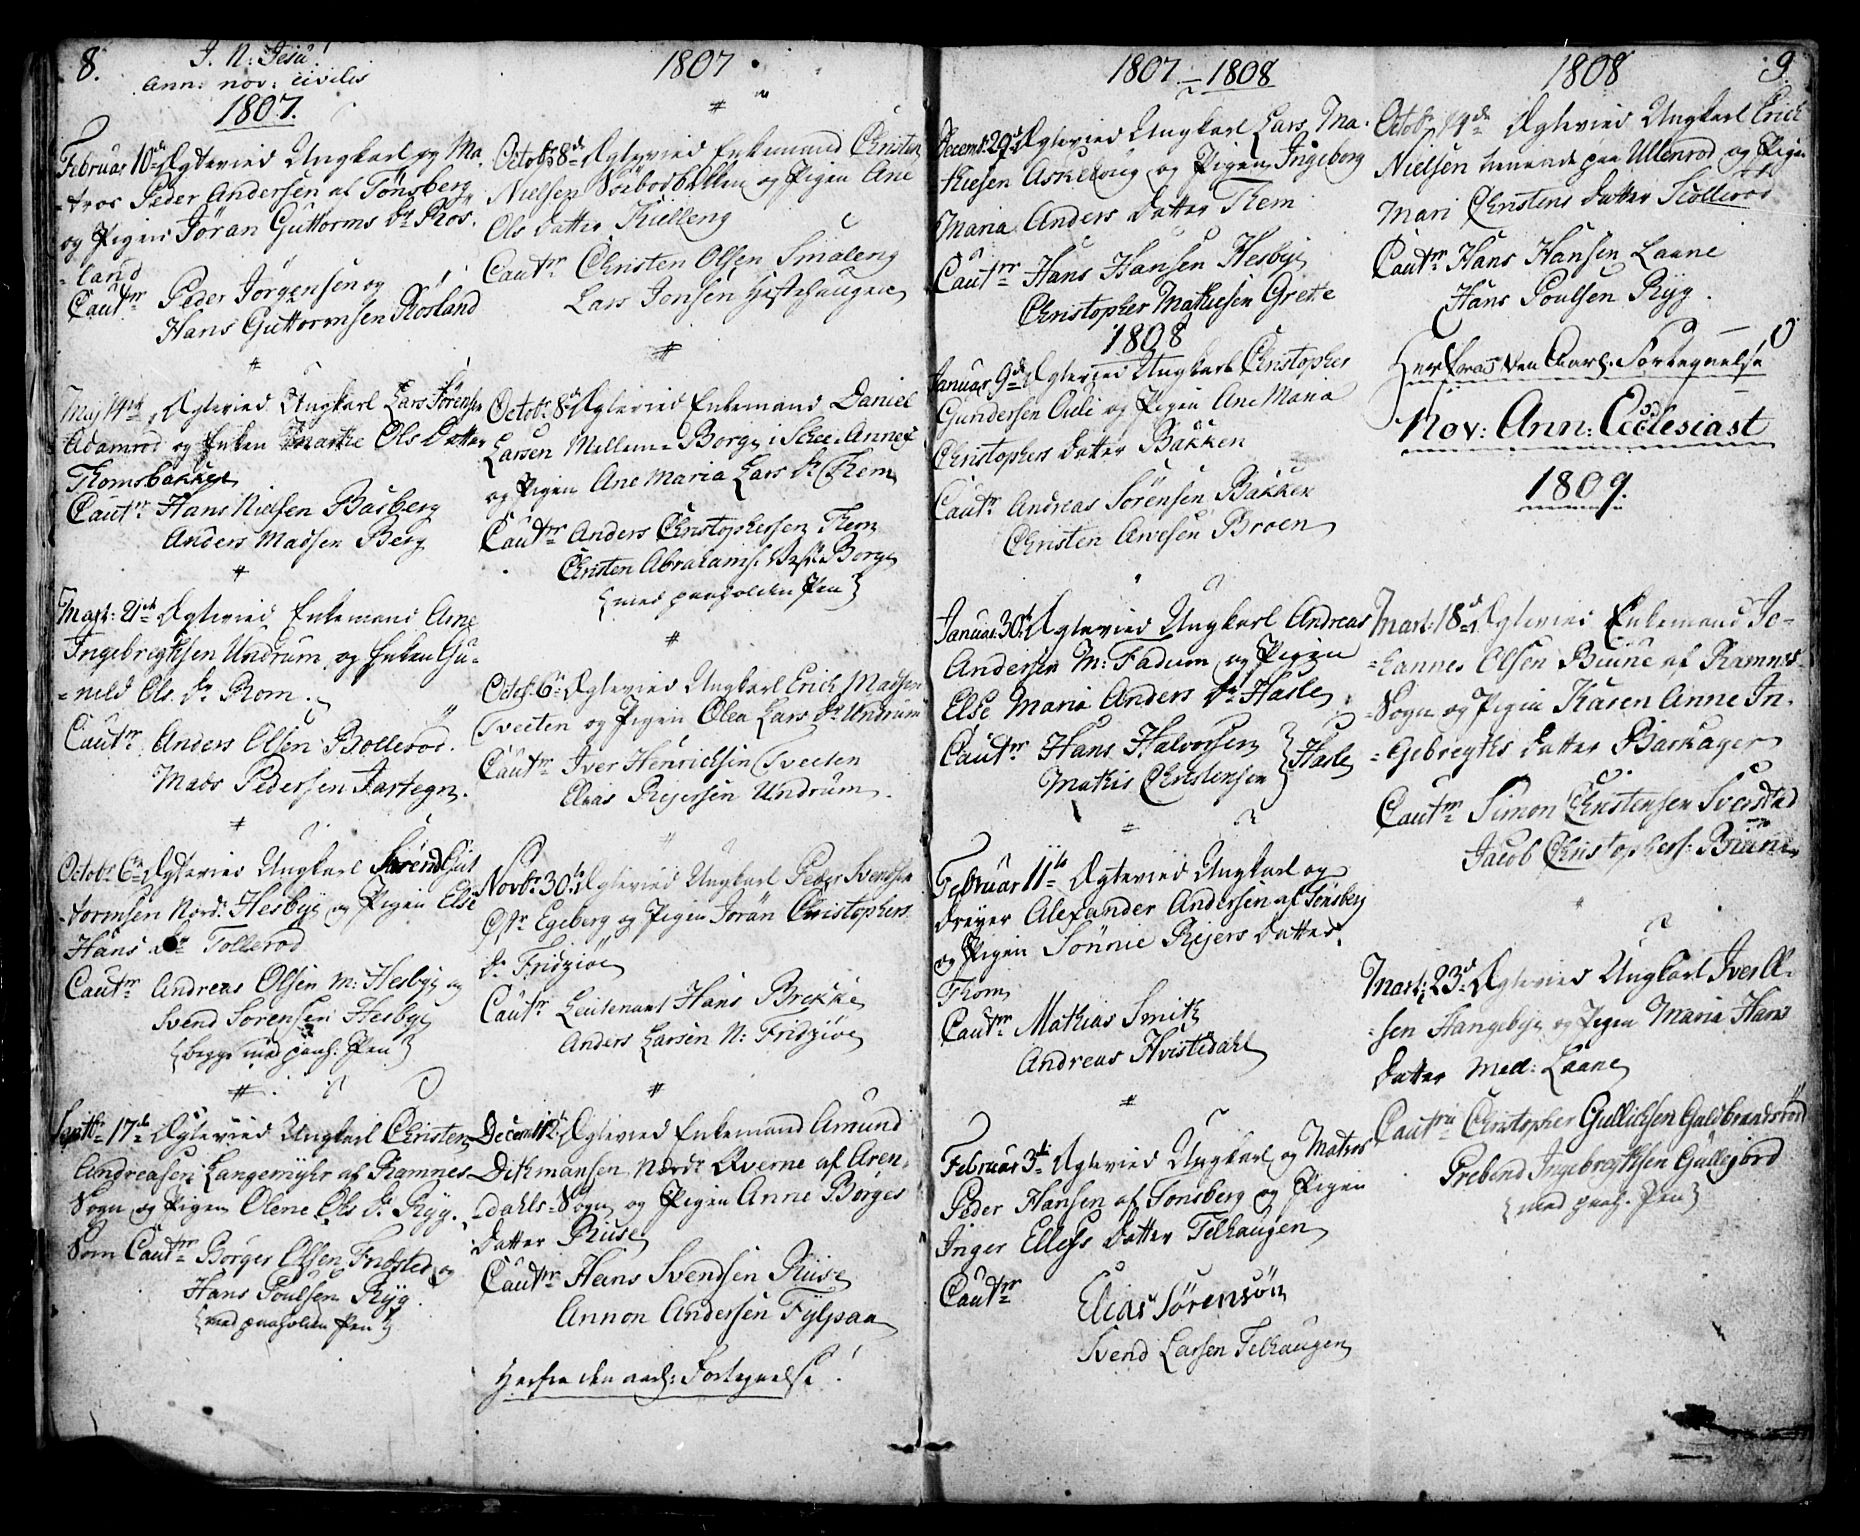 8.
J. N: Jesu!
Ann: nov: civilis
1807.
Februar 10de Ægtevied Ungkarl og Ma-
-tros Peder Andersen af Tönsberg
og Pigen Jöran Guttorms Dr Ros-
-land
Cautnr Peder Jörgensen og
Hans Guttormsen Rosland
#
Maj 14de Ægtevied Ungkarl Lars Sörensen
Adamrod og Enken Marthe Ols Datter
Thomsbakken
Cautnr Hans Nielsen Basberg
Anders Madsen Berg
#
Mart: 21de Ægtevied Enkemand Arne
Ingebregtsen Undrum og Enken Gu-
-nild Ols Dr Rom.
Cautnr Anders Olsen Bollerod.
Mads Pedersen Jartegn.
#
Octobr 6te Ægtevied Ungkarl Svend Gut
-tormsen Nord: Hesbye og Pigen Else
Hans Dr Tollerod
Cautnr Andreas Olsen M: Hesbye og
Svend Sorensen Hesbye
{begge med paah: Pen}
#
Septbr 17de Ægtevied Ungkarl Christen
Andreasen Langemyhr af Ramnes
Sogn og Pigen Olene Ols Dr Ryg.
Som Cautnr Börger Olsen Fridsted og
Hans Poulsen Ryg.
{med paaholden Pen}
1807
#
Octobr 8de Ægtevied Enkemand Christen
Nielsen Sörbodballen og Pigen Ane
Ols Datter Kielleng
Cautnr Christen Olsen Smaleng
Lars Jonsen Hestehaugen
#
Octobr 8de Ægtevied Enkemand Daniel
Larsen Mellem-Borge i Schee-Annex
og Pigen Ane Maria Lars Dr Them
Cautnr Anders Christophersen Them
Christen Abrahams: Vest: Borge
{med paaholden Pen}
#
Octobr 6te Ægtevied Ungkarl Erich Madsen
Sveeten og Pigen Olea Lars Dr Undrum
Cautnr Iver Henrichsen Sveeten
Elias Rejersen Undrum.
Novbr 30te Ægtevied Ungkarl Peder Svendsen
Ostr Egeberg og Pigen Jorän Christophers
Dr Fridziöe
Cautnr Leutenant Hans Brekke
Anders Larsen N: Fridziöe
#
Decembr 12te Ægtevied Enkemand Amund
Dithmansen Nordr Qverne af Aren-
-dahls-Sogn og Pigen Anne Börges
Datter Ruse
Cautnr Hans Svendsen Ruse
Annon Andersen Fylpaa
Herfra den aarl: Fortegnelse!
1807 - 1808
Decembr 29de Ægtevied Ungkarl Lars Ma-
thiesen Askekoug og Pigen Ingeborg
Maria Anders Datter Them
Cautnr Hans Hansen Hesbye
Christopher Mathiesen Grette
1808
Januar 9de Ægteviet Ungkarl Christopher
Gundersen Oeli og Pigen Ane Maria
Christophers Datter Bakken
Cautnr Andreas Sörensen Bakken
Christen Awesen Broen
Januar 30te Ægteviet Ungkarl Andreas
Andersen M: Fadum og Pigen
Else Maria Anders Dr Hasle
Cautnr Hans Halvorsen
Mathis Christensen } Hasle
Februar 11te Ægteviet Ungkarl og
Dreyer Alexander Andersen af Tönsberg
og Pigen Sönnie Rejers Datter
Thom
Cautnr Mathias Smith
Andreas Hvistedahl
#
Februar 3die Ægteviet Ungkarl og Matros
Peder Hansen af Tonsberg og Pigen
Inger Ellefs Datter Telhaugen
Cautnr Elias Sörensön
Svend Larsen Telhaugen
1808
9.
Octobr 14de Ægteviet Ungkarl Erich
Nielsen tienende paa Ullenrod og Pigen
Mari Christens Datter Scollerod
Cautnr Hans Hansen Laane
Hans Poulsen Ryg.
Herfra den Aarl: Fortegnelse
Nov: Ann: Ecclesiast
1809.
Mart: 18de Ægteviet Enkemand Jo-
-hannes Olsen Brune af Ramnes
-Sogn og Pigen Karen Anne In-
-gebregts Datter Barkager
Cautnr Simon Christensen Sverstad
Jacob Christophers: Brune
Mart: 23de Ægteviet Ungkarl Iver Ol-
-sen Hangebye og Pigen Maria Hans
Datter Med: Laane
Cautnr Christopher Gullichsen Guldbrandsröd
Prebend Ingebregtsen Gullesiord
{med paah: Pen}